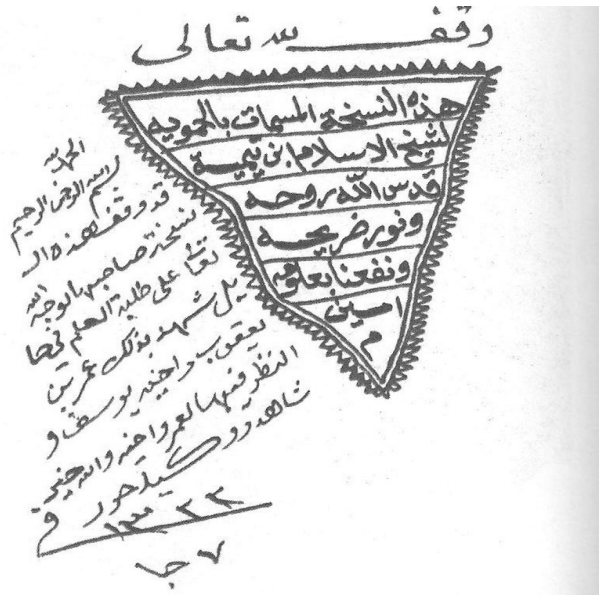 وقف لله تعالى
هذه النسخة المسمات بالحمويه
لشيخ الاسلام ابن تيمية
قدس الله روحه
ونور ضريحه
ونفعنا بعلومه
امين
م
الحمد لله
بسم الله الرحمن الرحيم
قد وقف هذه الـ
نسخة صاحبها لوجه الله
تعالى على طلبة العلم في حا
يل شهد بذلك عمر بن
يعقوب واخيه يوسف و
النظر فيها لعمر واخيه والله خير
شاهد ووكيل حرر في
١٣٢٢
٧ جا